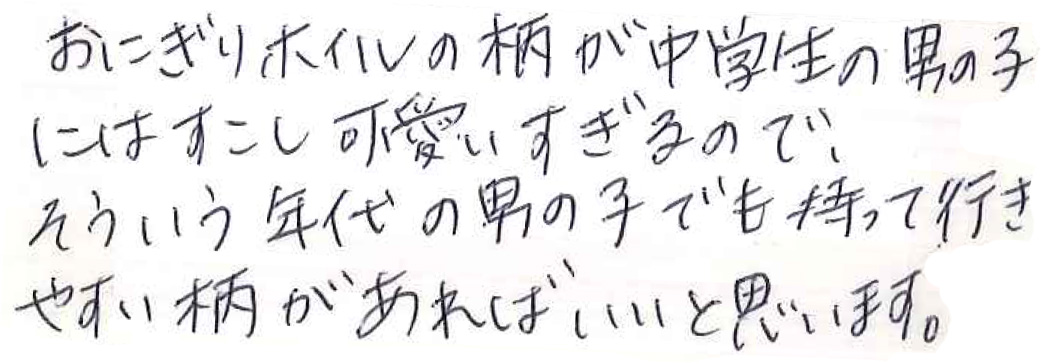 おにぎりホイルの柄が中学生の男の子
にはすこし可愛いすぎるので、
そういう年代の男の子でも持って行き
やすい柄があればいいと思います。